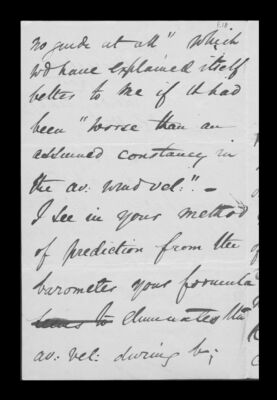 E18
no guide at all" which
wd have explained itself
better to me if it had
been "worse than an
assumed constancy in
the av: wind vel:". —
I see in your method
of prediction from the
barometer your formula
to eliminates the
av: vel: during b;